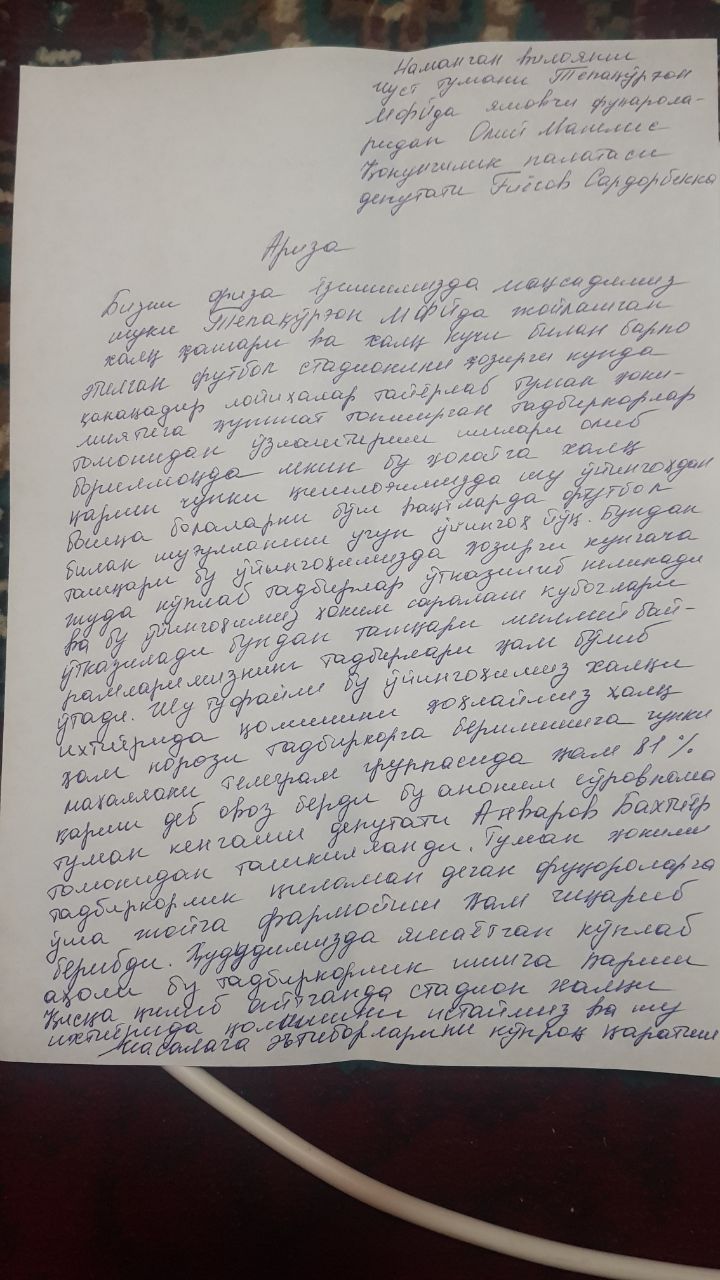 Наманган вилояти
чуст тумани Тепақўрғон
МФЙда яшовчи фуқарола-
ридан Олий Мажлис
Қонунчилик палатаси
депутати Ғиёсов Сардорбекка
Ариза
Бизни ариза ёзишимизда мақсадимиз
шуки Тепақўрғон МФЙда жойлашган
халқ ҳашари ва халқ кучи билан барпо
этилган футбол стадионини ҳозирги кунда
қанақадир лойиҳалар тайёрлаб туман ҳоки-
миятига ҳужжат топширган тадбиркорлар
томонидан ўзлаштириш ишлари олиб
борилмоқда лекин бу ҳолатга халқ
қарши чунки қишлоғимизда шу ўйингоҳдан
бошқа болаларни бўш вақтларда футбол
билан шуғулланиши учун ўйингоҳ йўқ. Бундан
ташқари бу ўйингоҳимизда ҳозирги кунгача
жуда кўплаб тадбирлар ўтказилиб келинади
ва бу ўйингоҳимиз ҳоким саралаш кубоглари
ўтказилади бундан ташқари миллий бай-
рамларимизнинг тадбирлари ҳам бўлиб
ўтади. Шу туфайли бу ўйингоҳимиз халқи
ихтиёрида қолишини хоҳлаймиз халқ
ҳам норози тадбиркорга берилишига чунки
маҳаллани телеграм группасида ҳам 81%
қарши деб овоз берди бу аноним сўровнома
туман кенгаши депутати Анваров Бахтиёр
томонидан ташкилланди. Туман ҳокими
тадбиркорлик қиламан деган фуқороларга
ўша жойга фармойиш ҳам чиқариб
берибди. Ҳудудимизда яшаётган кўплаб
аҳоли бу тадбиркорлик ишига қарши
Қисқа қилиб айтганда стадион халқи
ихтиёрида қолишини истаймиз ва шу
масалага эътиборларини кўпроқ қаратиш